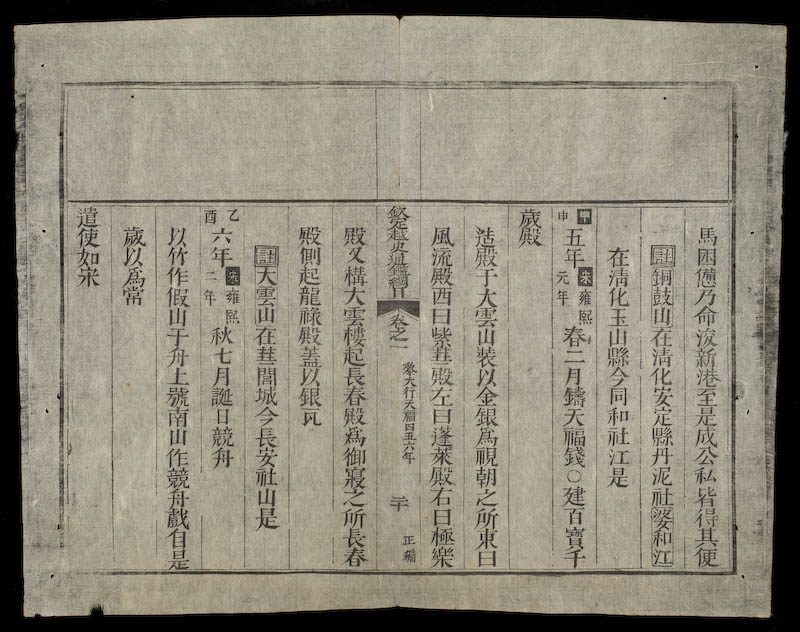 馬困憊乃命浚新港至是成公私皆得其便
註銅鼓山在清化安定縣丹泥社婆和江
在清化玉山縣今同和社江是
甲申五年宋雍熙元年春二月鑄天福錢○建百寶千
歲殿
造殿于大雲山裝以金銀爲視朝之所東曰
風流殿西曰紫𦶎殿左曰蓬萊殿右曰極樂
欽定越史通鑑綱目
卷之一
黎大行天福四五六年
二十
正編
殿又構大雲樓起長春殿爲御寢之所長春
殿側起龍祿殿蓋以銀瓦
註大雲山在𦶎閭城今長安社山是
乙酉六年宋雍熙二年秋七月誕日競舟
以竹作假山于舟上號南山作競舟戲自是
歲以爲常
遣使如宋